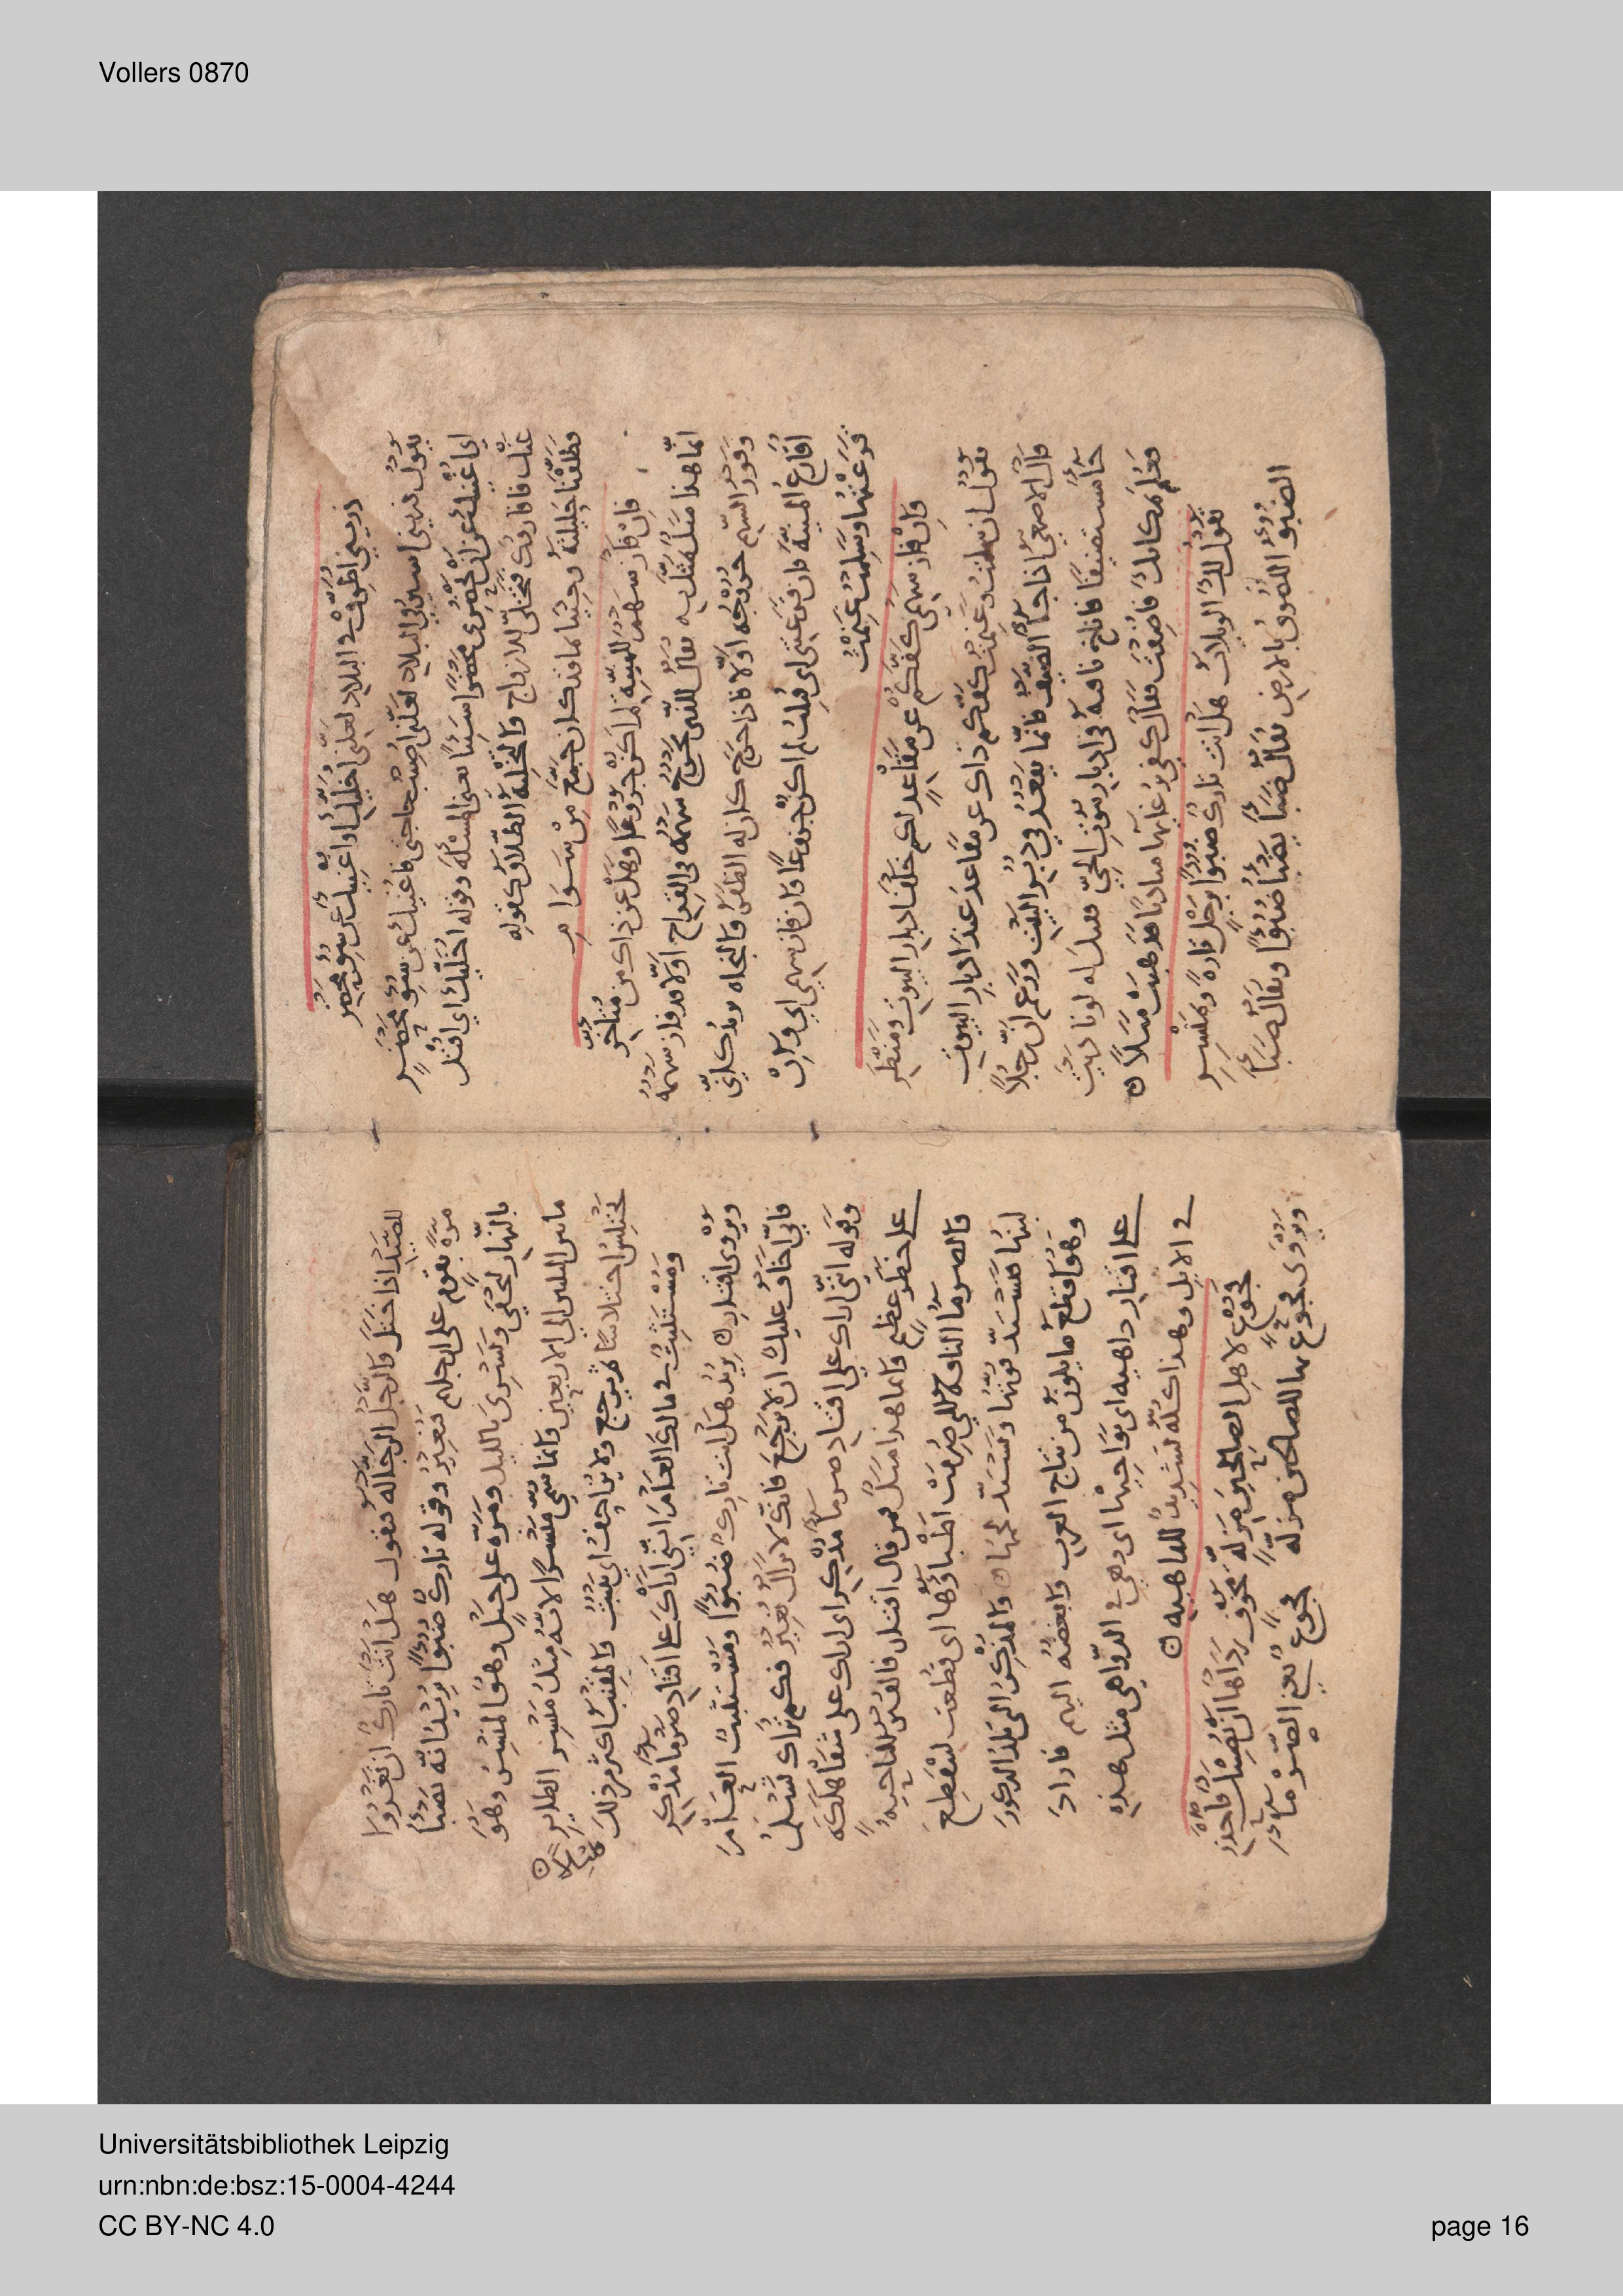 Vollers 0870
ذريني اطوف في البلاد لعلني اخليك او اغنيك عن سوء محضر
يقول ذريني اسير في البلاد لعلني اصيب حاجتي فاغنيك عن سوء محضر
اي اغنيك عن ان تحضري محضرا سيئا يعني المسئلة وقوله اخليك اي اقتل
عنك فافارقك فتخلي للازواج والتخلية الطلاق كقوله
وطلقنا حليلته وجئنا بما قد كان جمع من سوام
فان فاز سهم للمنية لم اكن جزوعا وهل عن ذاك من متاخر
انما هذا مثل تمثل به يقال للذي يخرج سهمه في القداح اولا قد فاز سهمه
وفوز السهم خروجه اولا فاذا خرج كان له الظفر والنجاه يذكر اني
اقارع المنية فان قرعتني اي قتلت لم اكن جزعا وان فاز سهمي اي وان
قرعتها وسلمت غنمت
وان فاز سهمي كفكم عن مقاعد لكم خلف ادبار البيوت ومنظر
يقول ان سلمت وغنمت كفكم ذاك عن مقاعد عند ادبار البيوت
قال الاصمعي اذا جا الضيف فانما يقعد في دبر البيت وزعم ان رجلا
جا مستضيفا فاناخ ناقته في ادبار بيوت الحي فقيل له لو ناديت
فعلم مكانك فاضفت فقال كفى برغائها مناديا فذهبت مثلا
تقول لك الويلات هل انت تارك ضبوءا برجل تارة وبمنسر
الضبوء اللصوق بالارض يقال ضبا يضبا ضبوءا ويقال ضبا
للصيد اذا ختل والرجل الرجاله يقول هل انت تارك ان تغزوا
مرة بقوم على ارجلهم فتغير وقوله تارك ضبوءا يريد انه يضبا
بالنهار ليخفى ويسري بالليل ومرة على خيل وهو المنسر وهو
ما بين الثلثين الى الاربعين وانما سمي منسرا لانه مثل منسر الطاير
يختلس اختلاسا ثم يرجع ولا يزاحف اي يلبث والمقنب اكثر من ذلك
ومستثبت في مالك العام انني اراك على اقتاد صرماء مذكر
ويروى اقتار يريد هل انت تارك ضبوءا ومستثبت العام
فاني اخاف عليك ان لا ترجع فانك لا تزال تغير فكم تراك تسلم
وقوله انني اراك على اقتاد صرما مذكر اي اراك على شفا هلكة
على خطر عظيم وانما هذا مثل ومن قال اقتار فالقتر الناحية
والصرما الناقة التي صرمت اطباؤها اي قطعت لينقطع
لبنها فيشتد قوتها ويشتد لحمها والمذكر التي تلد الذكور
وهو افظع ما يكون من نتاج العرب وابغضه اليهم فاراد
على اقتار داهيه اي نواحيها اي وهي في الدواهي مثل هذه
في الابل وهذا كله تشديد للداهيه
فجوع لاهل الصالحين مزلة مخوف رداها ان تصيبك فاحذر
ويروى فجوع بها للصالحين مزلة فجوع يعني الصرما
Universitätsbibliothek Leipzig
urn:nbn:de:bsz:15-0004-4244
CC BY-NC 4.0
page 16